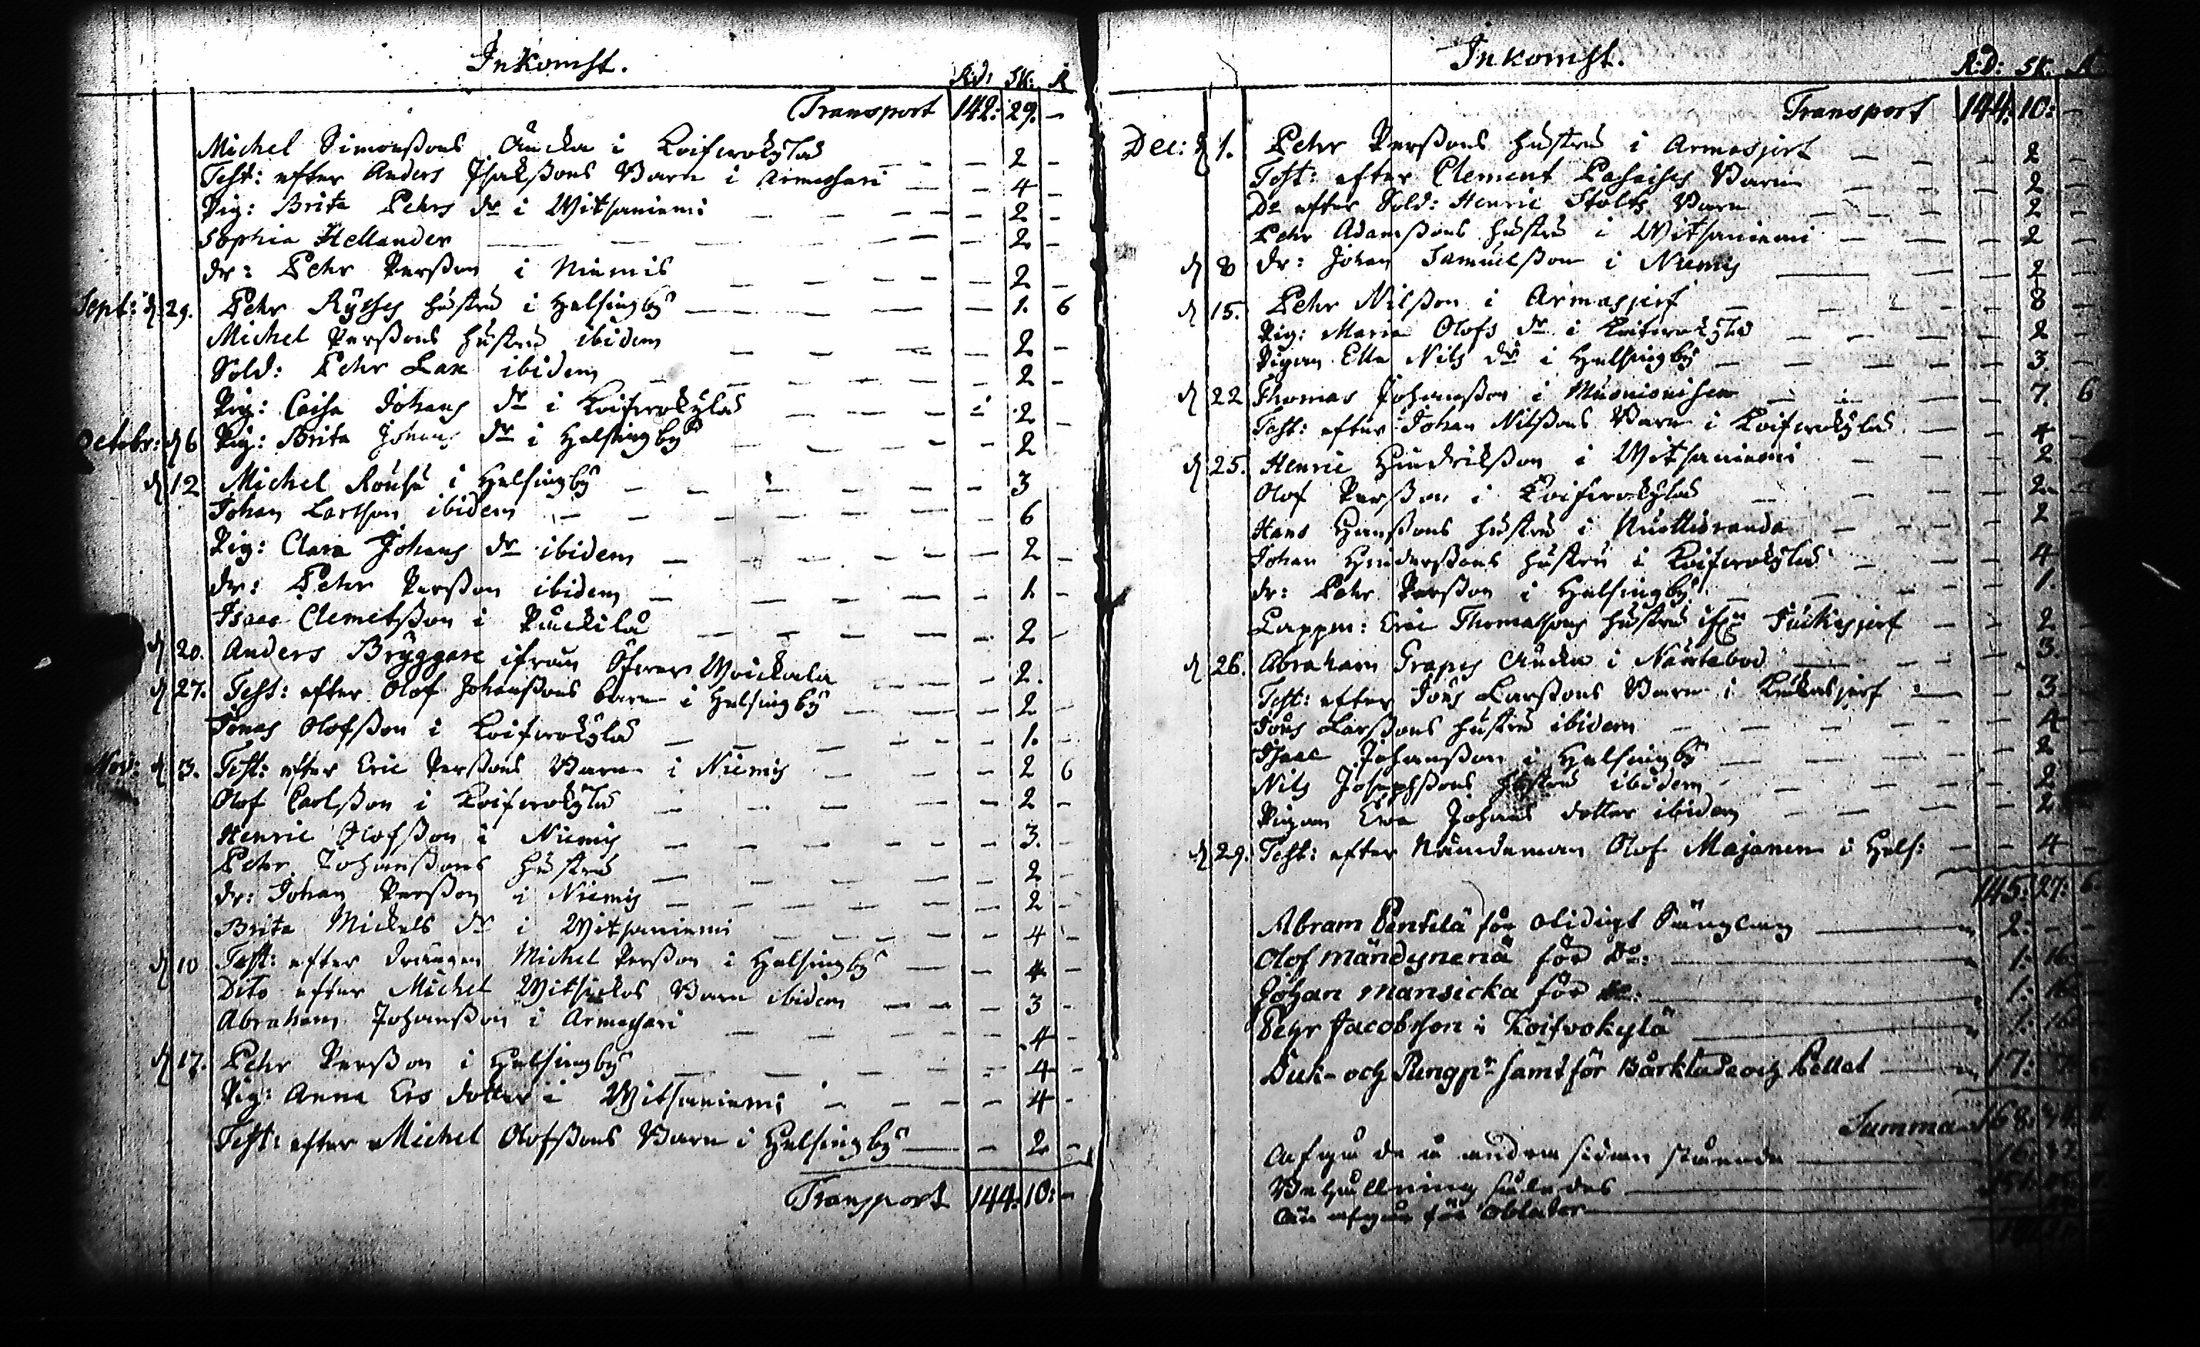 Inkomst.
R:d: Sk: R
Transport 142: 29. -
Michel Simonssons Äncka i Koifwokylä - - 2 -
Test: efter Anders Isakssons Barn i Armassari - - 4 -
Pig: Brita Pehrs dr i Witsaniemi - - 2 -
Sophia Hellander - - 2 -
dr: Pehr Persson i Niemis - - 2 -
Sept: d. 29. Pehr Rythes hustru i Helsingby - - 1. 6
Michel Perssons hustru ibidem - - 2 -
Sold: Pehr Lax ibidem - - 2 -
Pig: Caisa Johans dr i Koifwokylä - - 2 -
Octobr: d. 6 Pig: Brita Johans dr i Helsingby - - 2
d. 12 Michel Rousu i Helsingby - - 3
Johan Larsson ibidem - - 6
Pig: Clara Johans dr ibidem - - 2 -
dr: Pehr Persson ibidem - - 1. -
Isaac Clemetsson i Ruckila - - 2 -
d. 20. Anders Bryggare ifrån Öfwer Woickala - - 2. -
d. 27. Test: efter Olof Johanssons barn i Helsingby - - 2 -
Jonas Olofsson i Koifwokylä - - 1. -
Nov: d. 3. Test: efter Eric Perssons Barn i Niemis - - 2 6
Olof Carlsson i Koifwokylä - - 2 -
Henric Olofsson i Niemis - - 3. -
Pehr Johanssons hustru - - 2 -
dr: Johan Persson i Niemis - - 2 -
Brita Mickels dr i Witsaniemi - - 4 -
d. 10 Test: efter drängen Michel Persson i Helsingby - - 4 -
Dito efter Michel Witsickos Barn ibidem - - 3 -
Abraham Johansson i Armassari - - 4 -
d. 17. Pehr Persson i Helsingby - - 4 -
Pig: Anna Ers dotter i Witsaniemi - - 4 -
Test: efter Michel Olofssons Barn i Helsingby - - 2 -
Transport 144: 10: -
Inkomst.
R:D: Sk: R
Transport 144: 10: -
Dec: d. 1. Pehr Perssons hustru i Armasjerf - - 2 -
Test: efter Clement Barn - - 2 -
Do efter Sold: Henric Stolts Barn - - 2 -
Pehr Adamssons hustru i Witsaniemi - - 2 -
d. 8 dr: Johan Samuelsson i Niemis - 2 -
d. 15. Pehr Nilsson i Armasjerf - - 8 -
Pig: Maria Olofs dr i Koifwokylä - - 2 -
Pigan Ella Nils dr i Helsingby - - 3. -
d. 22 Thomas Johansson i Muonionisca - - 7. 6
Test: efter Johan Nilssons Barn i Koifwokylä - - 4 -
d. 25. Henric Hindriksson i Witsaniemi - - 2
Olof Persson i Koifwokylä - - 2
Hans Hanssons hustru i Nuottioranda - - 2
Johan Hinderssons hustru i Koifwokylä - - 4
dr: Pehr Persson i Helsingby - - 1
Lappm: Eric Thomassons hustru ifrån - - 2 -
d. 26. Abraham Grapes Äncka i - - 3. -
Test: efter Jöns Larssons Barn i Kukasjerf - - 3. -
Jöns Larssons hustru ibidem - - 4 -
Isaac Johansson i Helsingby - - 2 -
Nils Josephssons hustru ibidem - - 2
Pigan Ewa Johans dotter ibidem - - 2
d. 29. Test: efter Nämdeman Olof Majanen i Hels: - - 4 -
145: 27: 6
Abram Pentilä för olidigt Sänglag 2: - -
Olof Mändynenä för Do: 1: 16.
Johan Mansicka för Do: 1: 16
Pehr Jacobsson i Koifvokylä 1: 16
Duk- och Pungpr samt för Bårkläde och Pellet 17:
Summa 168:
Afgår de å andra sidan stående 16:
Behållning således 151:
Än afgår för Oblater